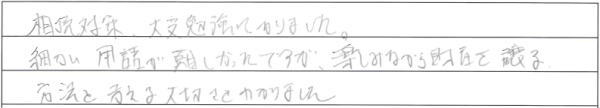 相続対策、大変勉強になりました。
細かい用語が難しかったですが、楽しみながら財産を譲る
方法を考える大切さとわかりました